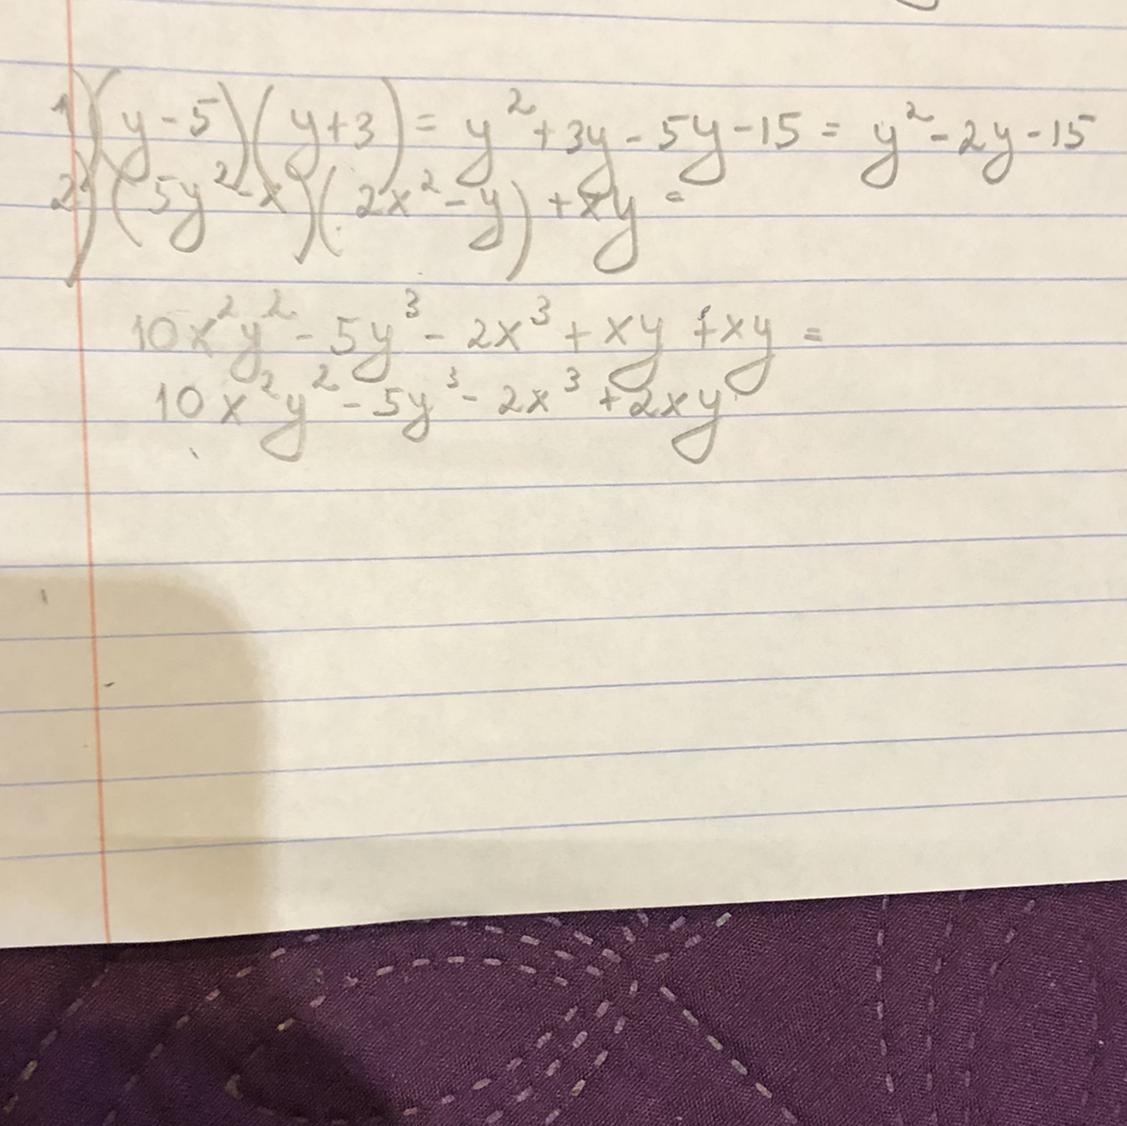 1) (y-5)(y+3) = y² + 3y - 5y - 15 = y² - 2y - 15
2) (5y² - x)(2x² - y) + xy =
10x²y² - 5y³ - 2x³ + xy + xy =
10x²y² - 5y³ - 2x³ + 2xy